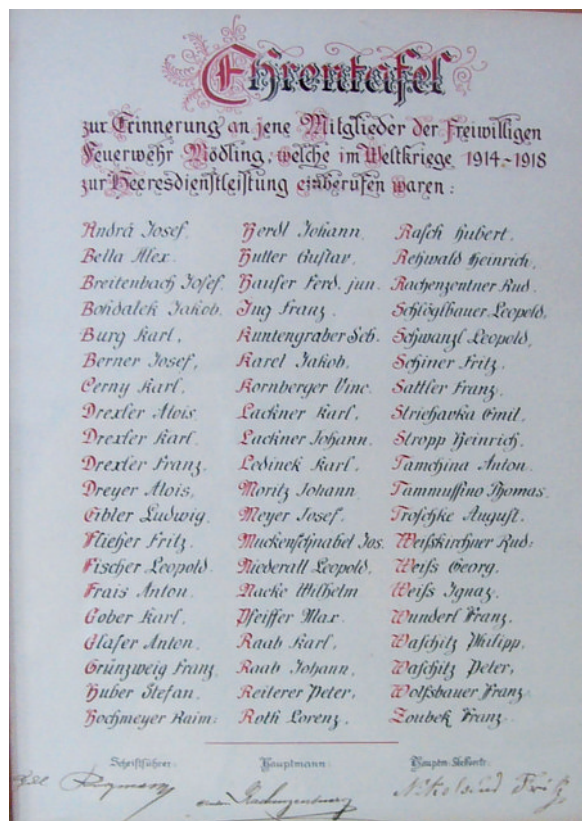 Ehrentafel
zur Erinnerung an jene Mitglieder der Freiwilligen
Feuerwehr Mödling, welche im Weltkriege 1914-1918
zur Heeresdienstleistung einberufen waren:
Andrä Josef.
Bella Alex.
Breitenbach Josef.
Bohdalek Jakob.
Burg Karl,
Berner Josef,
Cerny Karl,
Drexler Alois.
Drexler Karl.
Drexler Franz.
Dreyer Alois,
Eibler Ludwig.
Flieher Fritz.
Fischer Leopold.
Frais Anton.
Gober Karl,
Glaser Anton.
Grünzweig Franz.
Huber Stefan.
Hochmeyer Raim:
Herdl Johann.
Hutter Gustav,
Hauser Ferd. jun.
Jug Franz.
Kuntengraber Seb.
Karel Jakob,
Kornberger Vinc.
Lackner Karl,
Lackner Johann.
Ledinek Karl,
Moritz Johann
Meyer Josef,
Muckenschnabel Jos.
Niederall Leopold,
Macke Wilhelm
Pfeiffer Max.
Raab Karl,
Raab Johann,
Reiterer Peter,
Roth Lorenz,
Rasch Hubert.
Rehwald Heinrich,
Rachenzentner Rud.
Schlöglbauer Leopold,
Schwanzl Leopold,
Schiner Fritz.
Sattler Franz.
Strichavka Emil,
Stropp Heinrich,
Tamchina Anton.
Tammussino Thomas.
Troschke August.
Weißkirchner Rud:
Weiß Georg,
Weiß Ignaz,
Wunderl Franz.
Waschitz Philipp,
Waschitz Peter,
Wolfsbauer Franz.
Zoubek Franz.
Schriftführer:
Hauptmann:
Hauptm:-Stellvertr: